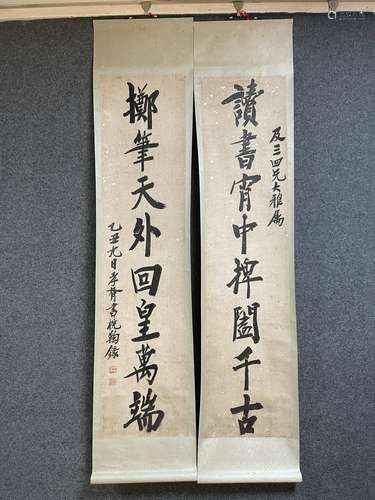 及三四兄大雅属
讀書宵中捭闔千古
擲筆天外回皇萬端
乙丑九日孝胥書